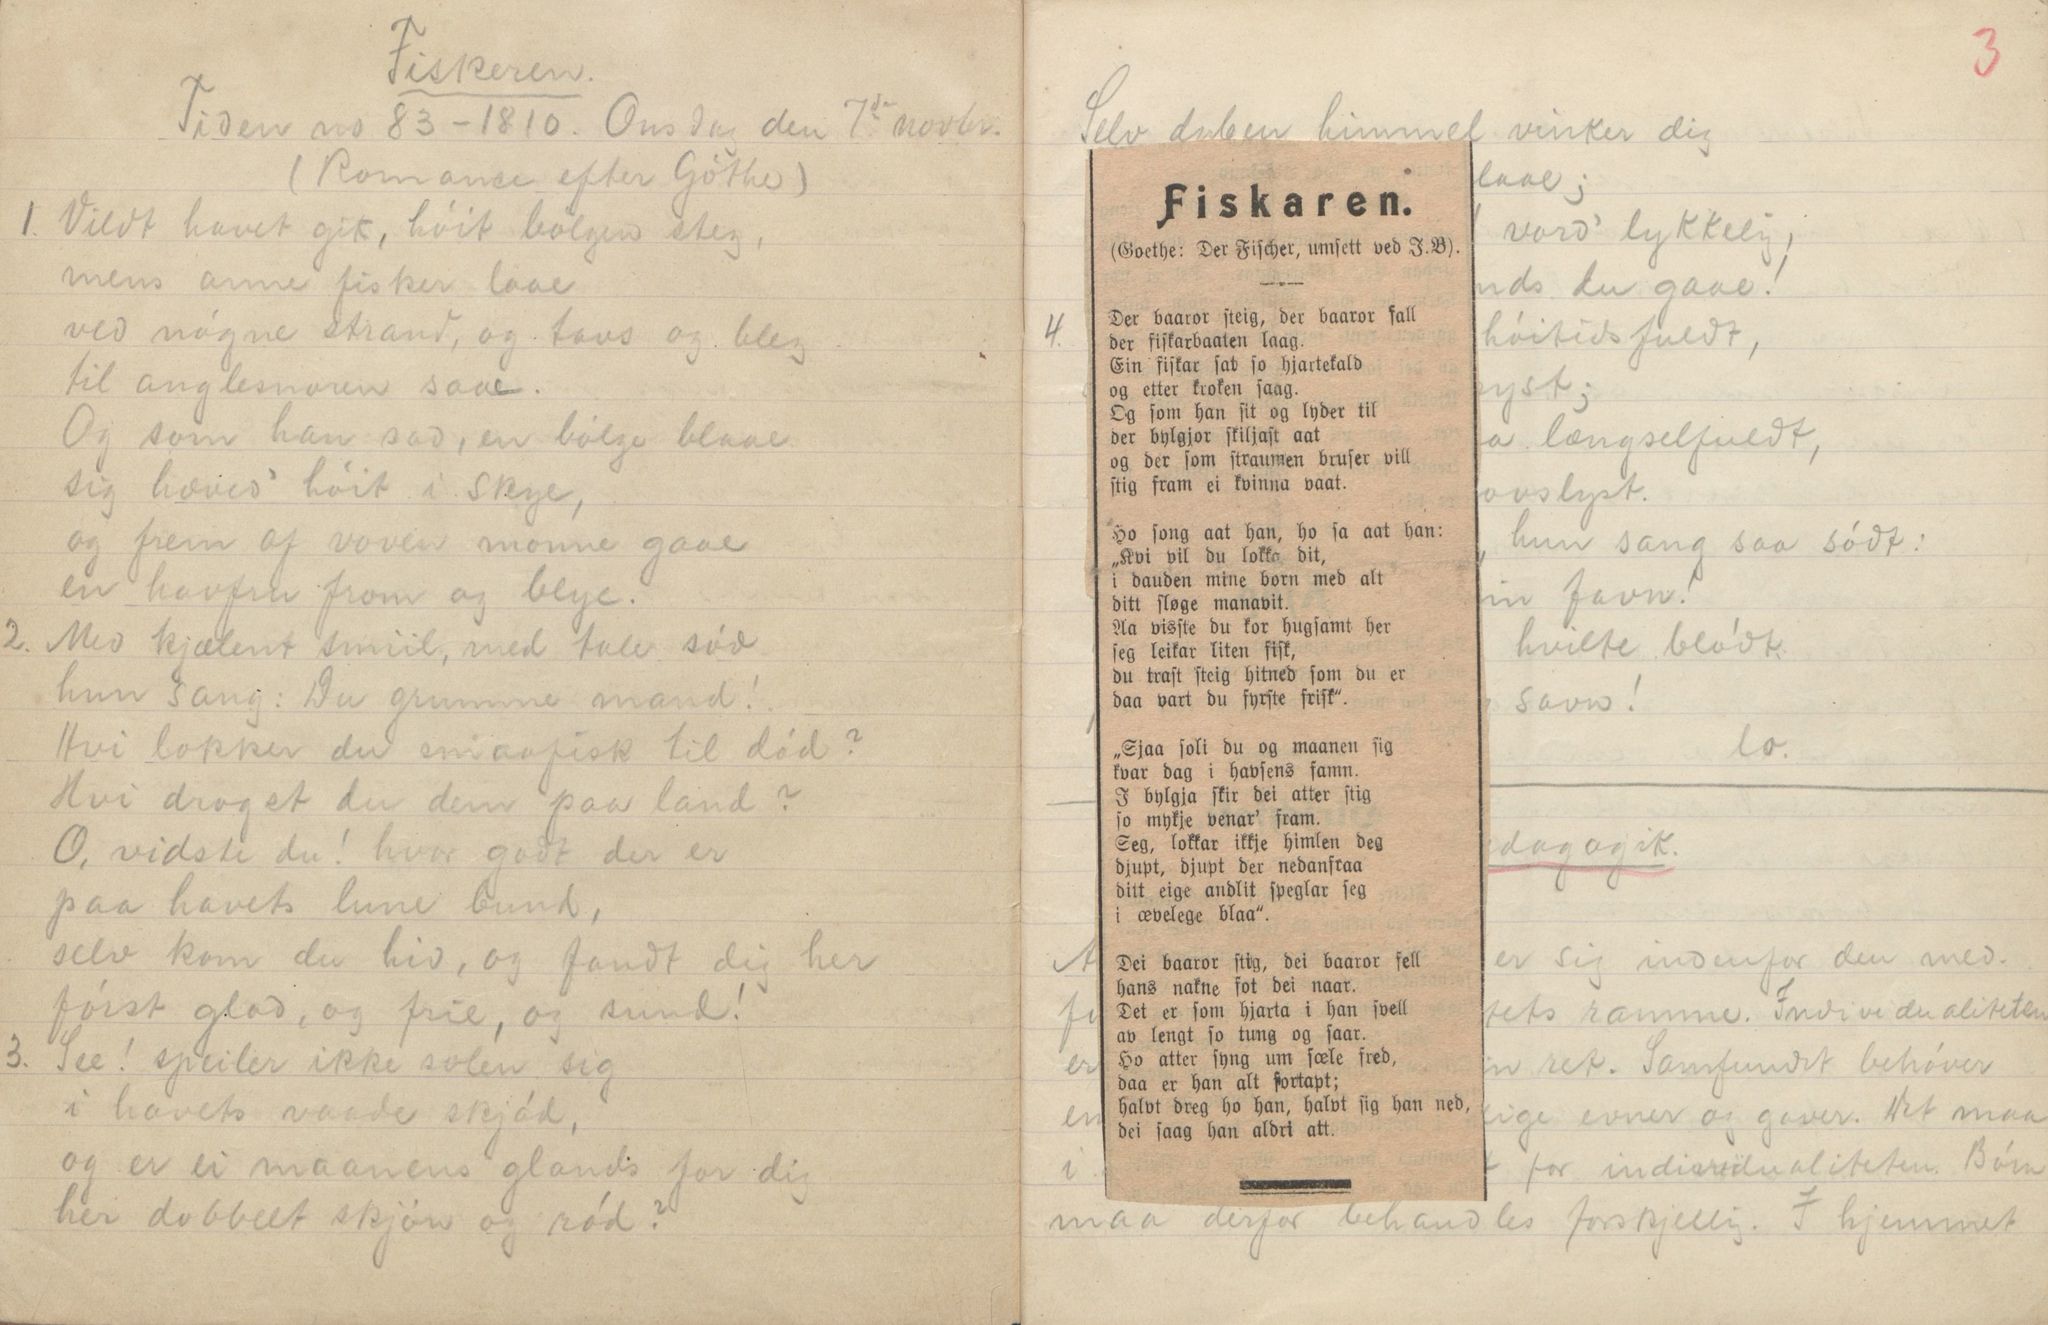 Fiskeren.
Tiden no 83 - 1810. Onsdag den 7de novbr.
(Romance efter Göthe)
1. Vildt havet gik, höit bölgen steg,
mens arme fisker laae
ved nögne strand, og tavs og bleg
til anglesnoren saae.
Og som han sad, en bölge blaae
sig hæved' höit i skye,
og frem af voven monne gaae
en havfru from og blye.
2. Med kjælent smiil, med tale söd
hun sang: Du grumme mand!
Hvi lokker du smaafisk til död?
Hvi droget du dem paa land?
O, vidste du! hvor godt der er
paa havets lune bund,
selv kom du hid, og fandt dig her
först glad, og frie, og sund!
3. See! speiler ikke solen sig
i havets vaade skjöd,
og er ei maanens glands for dig
her dobbelt skjön og röd?
3
Selv dyben himmel vinker dig
laae;
vord' lykkelig,
nds du gaae!
4.
höitidsfuldt,
yst;
længselfuldt,
ovslyst.
, hun sang saa södt:
in favn!
hvilte blödt
savn!
lo.
edagogik.
er sig indenfor den med-
tets ramme. Individualiteten
er
in ret. Samfundet behöver
en
lige evner og gaver. Det maa
i
for individualiteten. Börn
maa derfor behandles forskjellig. I hjemmet
Fiskaren.
(Goethe: Der Fischer, umsett ved J.B).
Der baaror steig, der baaror fall
der fiskarbaaten laag.
Ein fiskar sat so hjartekald
og etter kroken saag.
Og som han sit og lyder til
der bylgjor skiljast aat
og der som straumen bruser vill
stig fram ei kvinna vaat.
Ho song aat han, ho sa aat han:
„Kvi vil du lokka dit,
i dauden mine born med alt
ditt sløge manavit.
Aa visste du kor hugsamt her
seg leikar liten fisk,
du trast steig hitned som du er
daa vart du fyrste frisk“.
„Sjaa soli du og maanen sig
kvar dag i havsens famn.
I bylgja skir dei atter stig
so mykje venar' fram.
Seg, lokkar ikkje himlen deg
djupt, djupt der nedanfraa
ditt eige andlit speglar seg
i ævelege blaa“.
Dei baaror stig, dei baaror fell
hans nakne fot dei naar.
Det er som hjarta i han svell
av lengt so tung og saar.
Ho atter syng um sæle fred,
daa er han alt fortapt;
halvt dreg ho han, halvt sig han ned,
dei saag han aldri att.